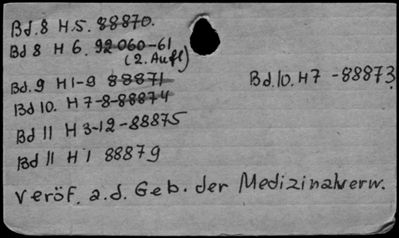 Bd.8 H.5. 88870.
Bd 8 H 6. 92060-61
(2. Aufl)
Bd.9 H1-9 88871
Bd.10. H7 -88873
Bd 10. H 7-8-88874
Bd 11 H 3-12-88875
Bd 11 H 1 88879
Veröf. a.d. Geb. der Medizinalverw.